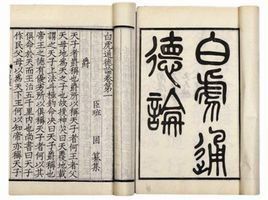 白虎通
德論
白虎通德論卷第一
臣班固纂集
爵
天子者爵稱也爵所以稱天子者何王者父
天母地爲天之子也故援神契曰天覆地載
謂之天子上法斗極鉤命決曰天子爵稱也
帝王之德有優劣所以俱稱天子者何以其
俱命於天而王治五千里內也尚書曰天子
作民父母以爲天下王何以知帝亦稱天子